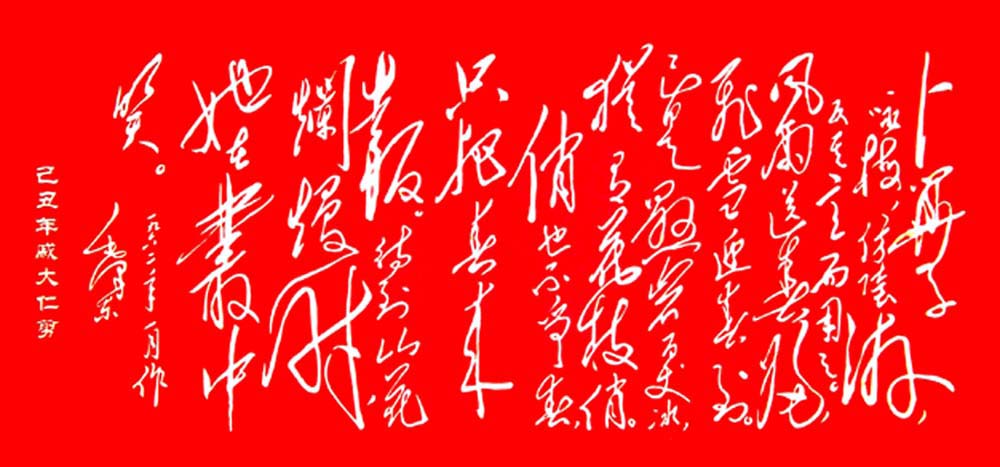 卜算子
咏梅,仿陸游,
反其意而用之。
风雨送春归,
飞雪迎春到。
已是悬崖百丈冰,
犹有花枝俏。
俏也不争春,
只把春来
報。待到山花
爛熳时
她在叢中
笑。
一九六二年一月作
毛泽东
己丑年戚大仁剪